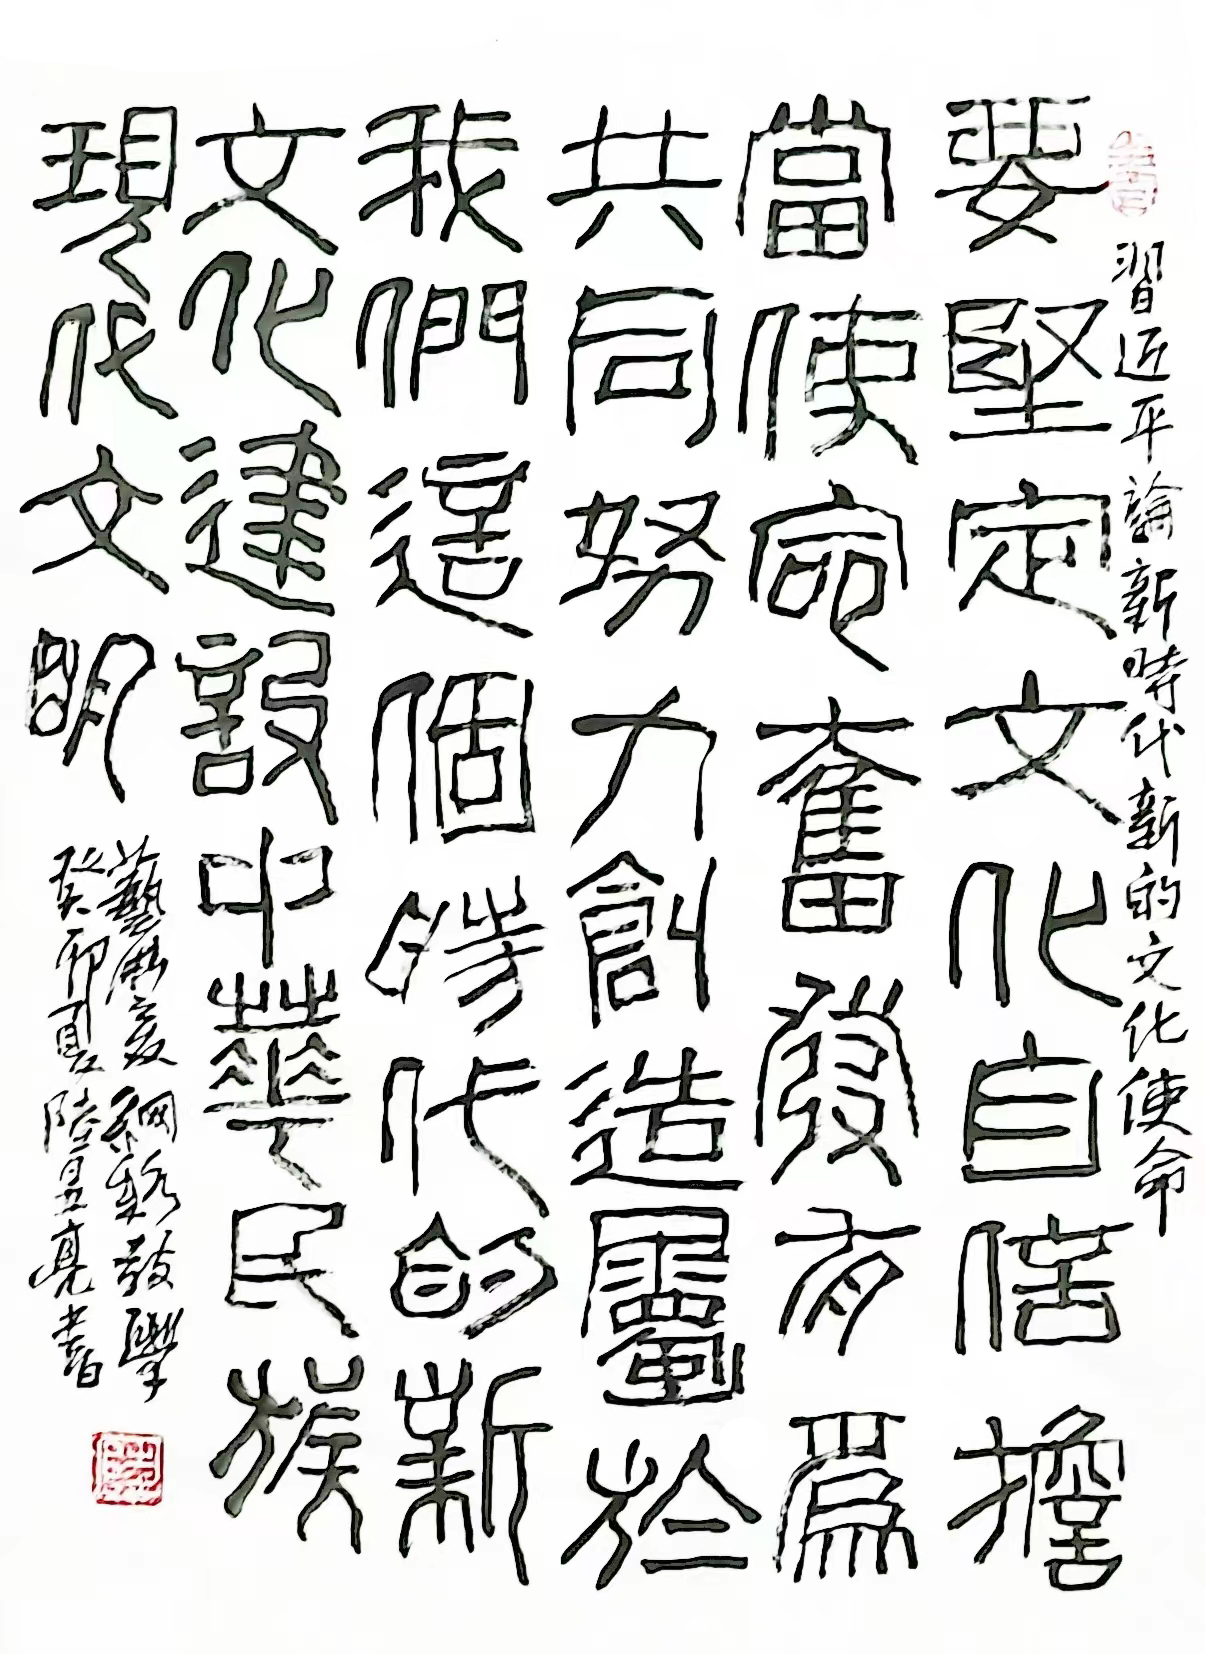 習近平論新時代新的文化使命
要堅定文化自信擔
當使命奮發有爲
共同努力創造屬於
我們這個時代的新
文化建設中華民族
現代文明
藝網絡教學
癸卯夏陸昱亮書